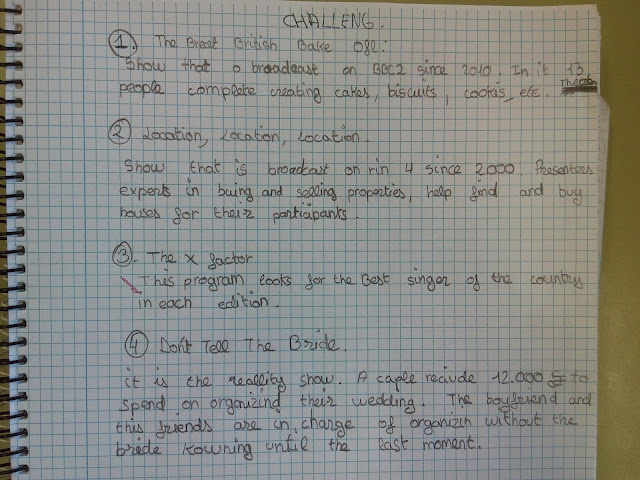 CHALLENG.
1. The Great British Bake Off:
Show that o broadcast on BBC2 since 2010. In it 13
people complete creating cakes, biscuits, cookis, etc.
2 Location, Location, Location.
Show that is broadcast on rin 4 since 2000. Presenters
experts in buing and selling properties, help find and buy
houses for their participants.
3. The X factor
This program looks for the Best singer of the country
in each edition.
4 Don't Tell The Bride.
it is the reallity show. A caple reciude 12.000 £ to
spend on organizind their wedding. The boyfriend and
this friends are in charge of organizin without the
bride Kowning until the last moment.